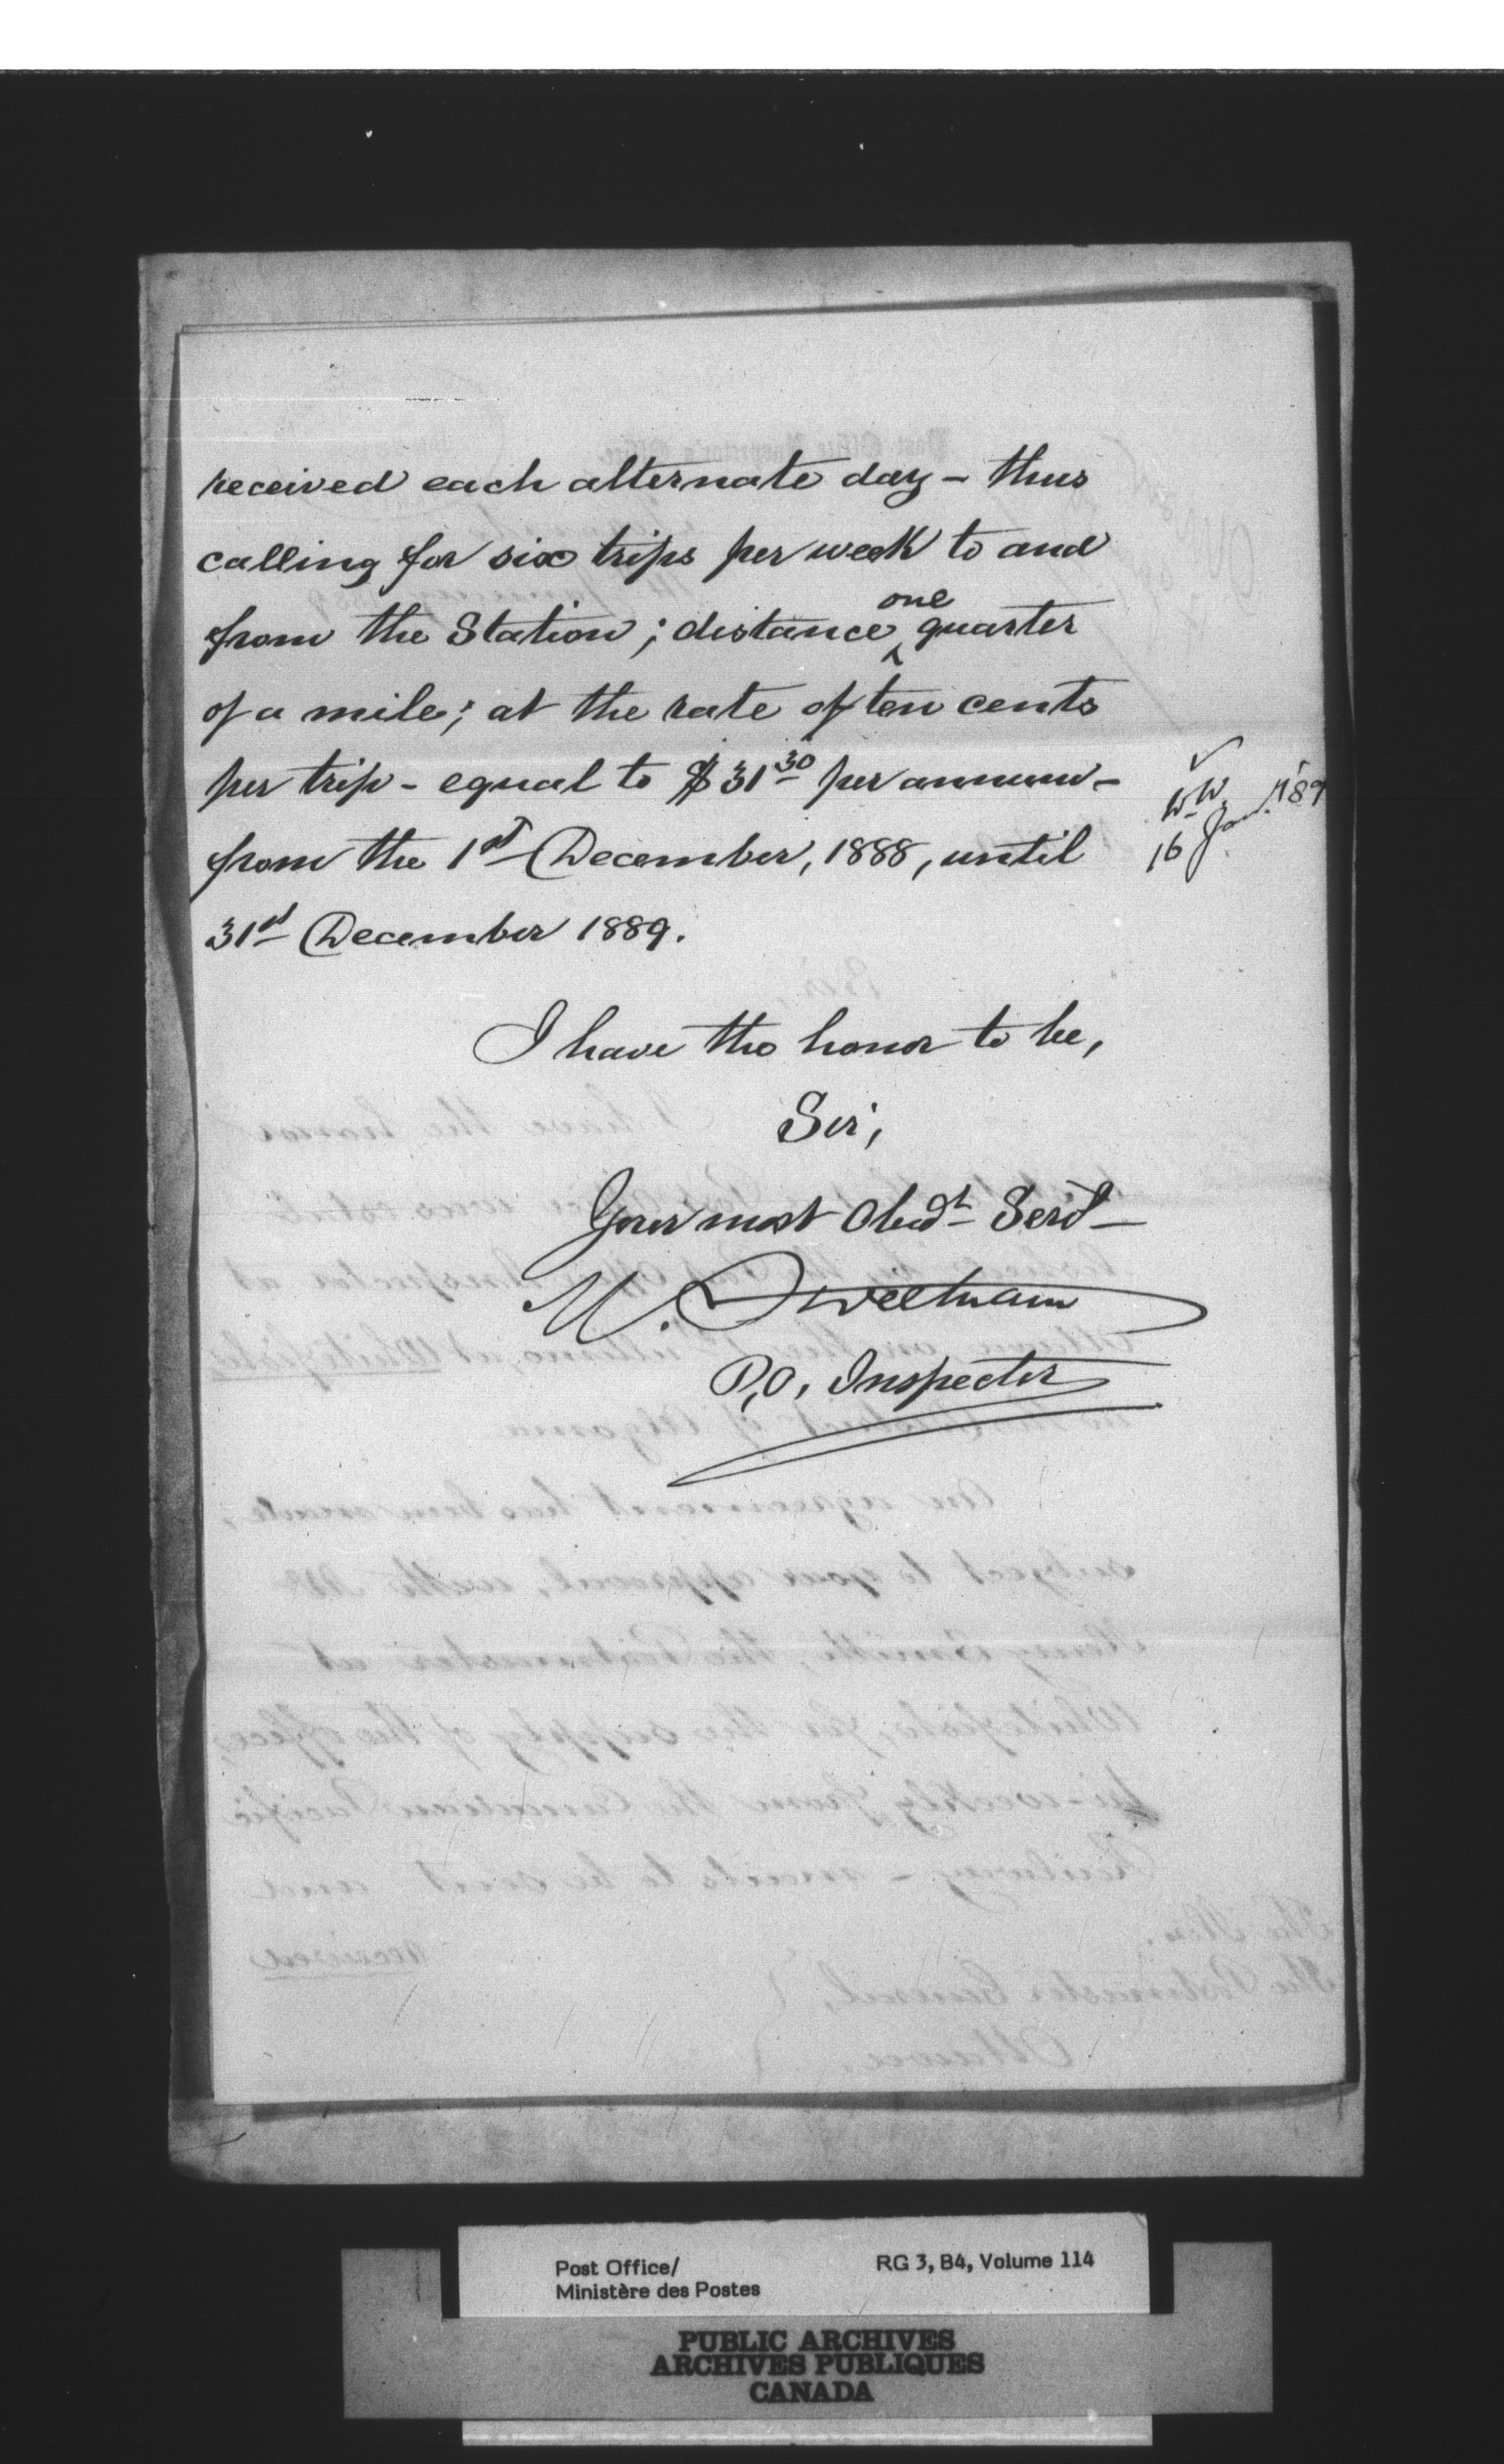 received each alternate day – thus
calling for six trips per week to and
from the Station; distance one quarter
of a mile; at the rate of ten cents
per trip – equal to $31.30 per annum –
from the 1st December, 1888, until
31st December 1889.
✓
W.W.
16 Jan. '89
I have the honor to be,
Sir,
Your most Obedt Servt
M. Sweetnam
P.O. Inspector
Post Office/
Ministère des Postes
RG 3, B4, Volume 114
PUBLIC ARCHIVES
ARCHIVES PUBLIQUES
CANADA